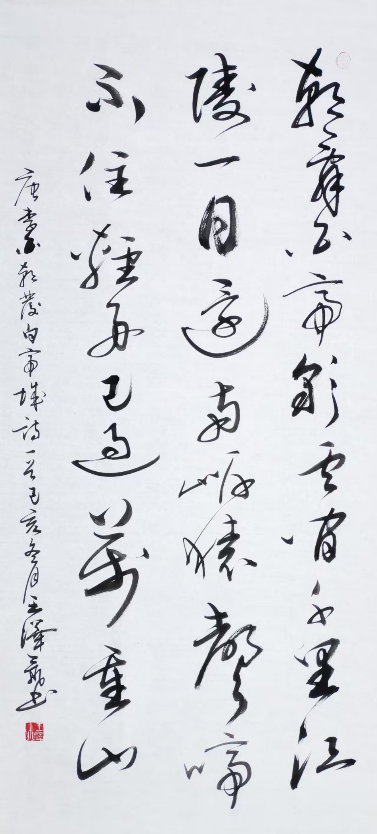 朝辞白帝彩云间千里江
陵一日还两岸猿声啼
不住轻舟已过万重山
唐李白朝发白帝城诗一首己亥冬月王泽勇书